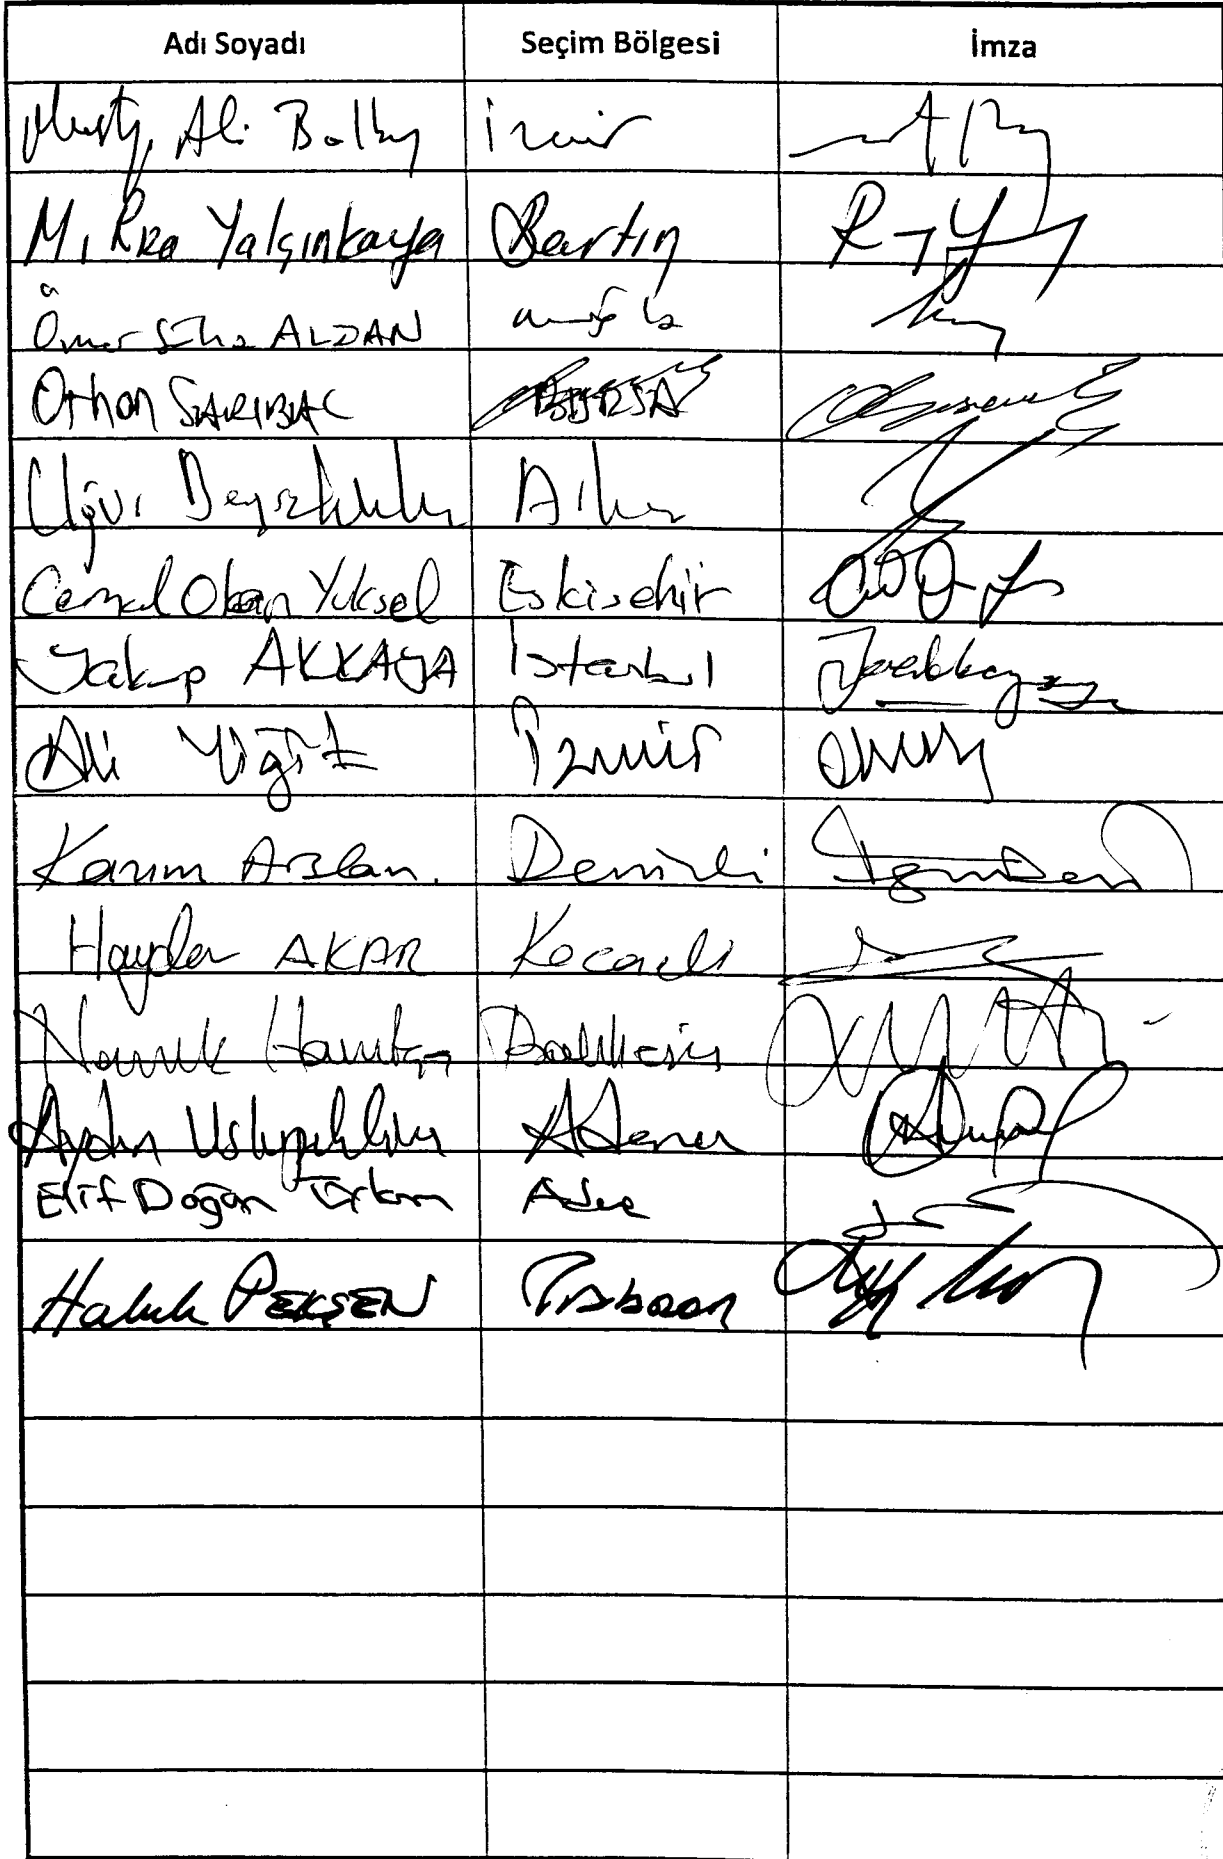 Adı Soyadı Seçim Bölgesi İmza
Ali Balbay İzmir
M. Rıza Yalçınkaya Bartın
Ömer Süha ALDAN Muğla
Orhan SARIBAL BURSA
Uğur Bayraktutan
Cemal Okan Yüksel Eskişehir
Yakup AKKAYA İstanbul
Ali Yiğit İzmir
Kazım Arslan. Denizli
Haydar AKAR Kocaeli
Namık Havutça Balıkesir
Aydın Uslupehlivan Adana
Elif Doğan Türkmen Adana
Haluk PEKŞEN Trabzon